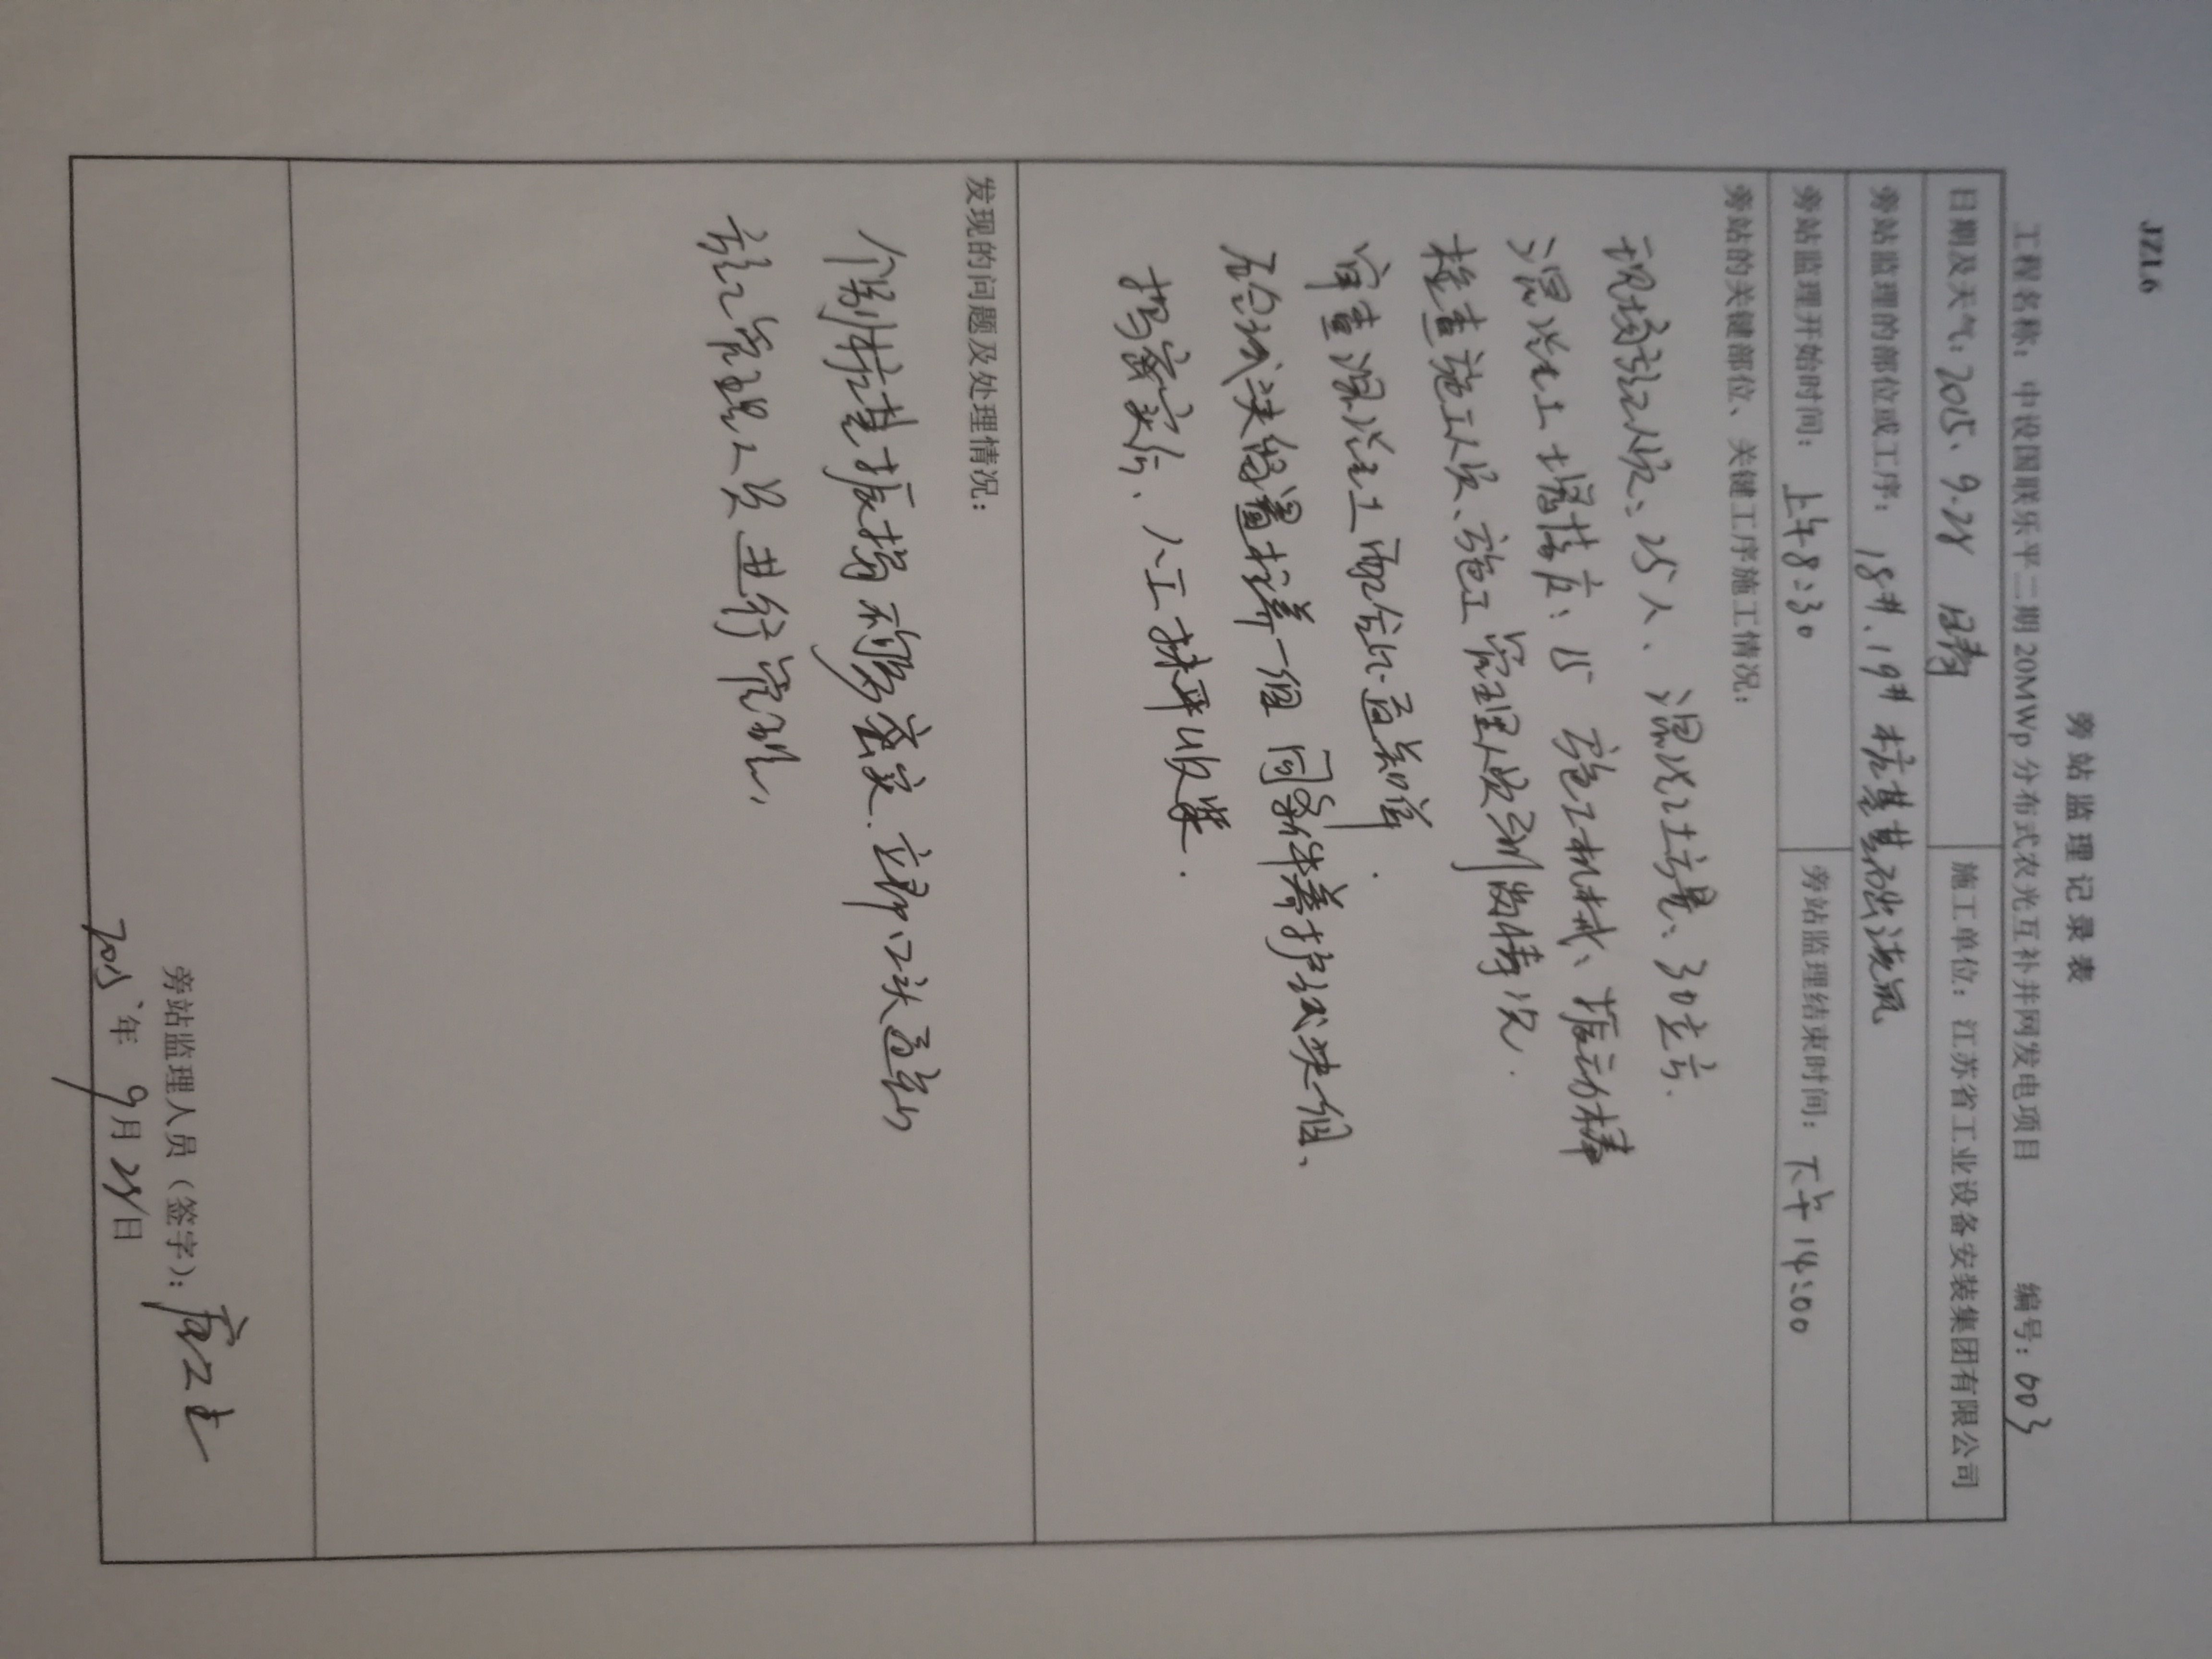 JZL6
旁站监理记录表
工程名称：中设国联乐平二期20MWp分布式农光互补并网发电项目 编号：003
日期及天气：2015、9.28 晴 施工单位：江苏省工业设备安装集团有限公司
旁站监理的部位或工序：18#、19#桩基基础浇筑
旁站监理开始时间：上午8:30 旁站监理结束时间：下午14:00
旁站的关键部位、关键工序施工情况：
现场施工人员：25人、混凝土方量：30立方.
混凝土塌落度：15 施工机械：振动棒
检查施工人员、施工管理人员到岗情况.
审查混凝土配合比通知单.
砼试块留置标养一组 同条件养护试块一组、
捣密实后、人工抹平收浆.
发现的问题及处理情况：
个别桩基振捣不够密实.立即口头通知
施工管理人员进行管理.
旁站监理人员（签字）：
2015年9月28日